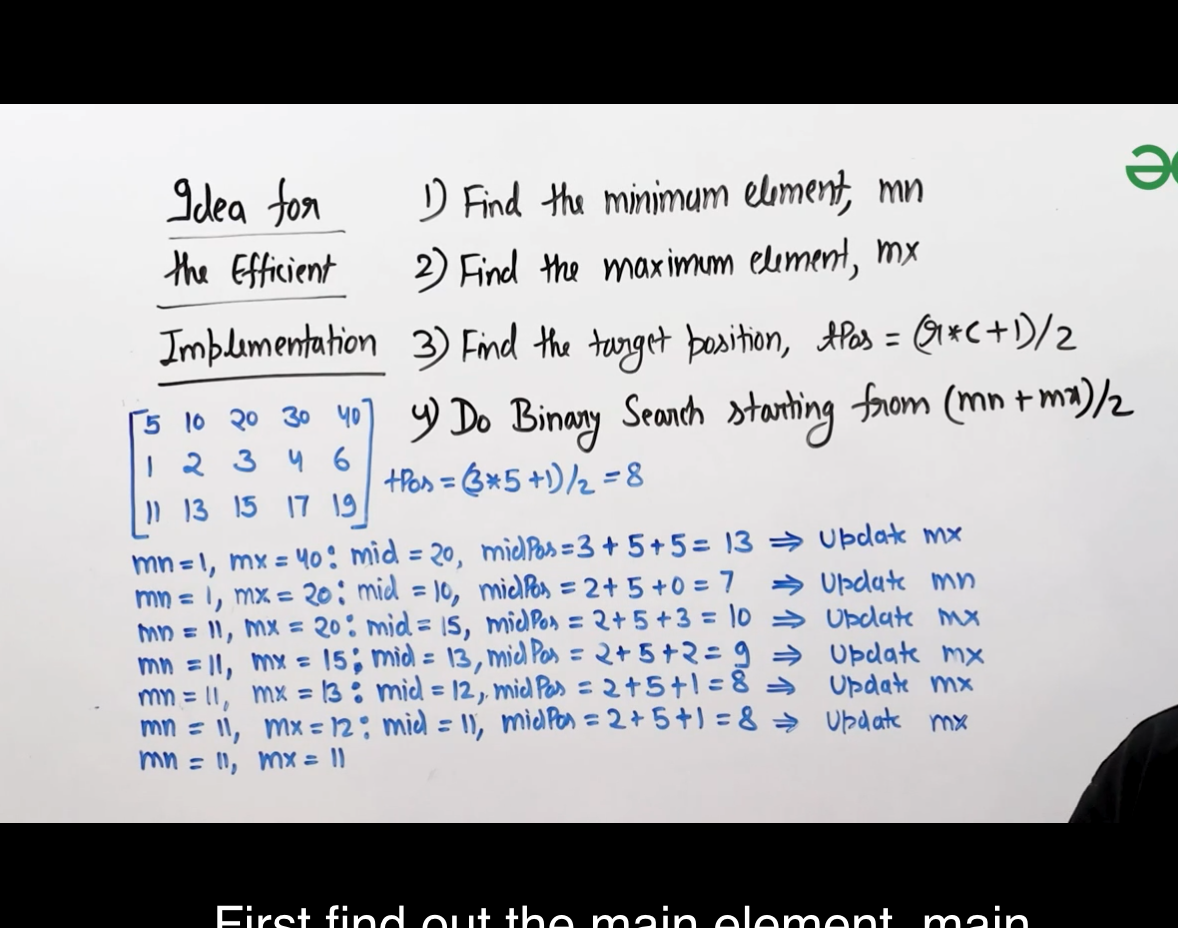 Idea for
the Efficient
Implementation
1) Find the minimum element, mn
2) Find the maximum element, mx
3) Find the target position, tPos = (r*c+1)/2
4) Do Binary Search starting from (mn + mx)/2
5 10 20 30 40
1 2 3 4 6
11 13 15 17 19
tPos = (3*5+1)/2 = 8
mn=1, mx = 40: mid = 20, midPos=3+5+5= 13 ⇒ Update mx
mn = 1, mx = 20: mid = 10, midPos = 2+5+0 = 7 ⇒ Update mn
mn = 11, mx = 20: mid = 15, midPos = 2+5+3 = 10 ⇒ Update mx
mn = 11, mx = 15: mid = 13, midPos = 2+5+2= 9 ⇒ Update mx
mn = 11, mx = 13: mid = 12, midPos = 2+5+1 = 8 ⇒ Update mx
mn = 11, mx = 12: mid = 11, midPos = 2+5+1 = 8 ⇒ Update mx
mn = 11, mx = 11
First find out the main element, main